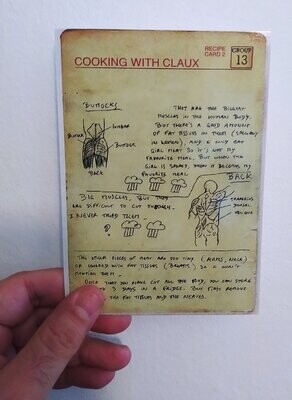 COOKING WITH CLAUX
RECIPE
CARD 2
GROUP
13
BUTTOCKS
THEY ARE THE BIGGEST
MUSCLES IN THE HUMAN BODY.
BUT THERE'S A GOOD AMOUNT
OF FAT TISSUES IN THEM (SPECIALLY
IN WOMEN), AND I ONLY EAT
GIRL MEAT SO IT'S NOT MY
FAVOURITE MEAL. BUT WHEN THE
GIRL IS SKINNY, THEN IT BECOMES MY
FAVORITE MEAL
BACK
BACK
BIG MUSCLES, BUT THEY
ARE DIFFICULT TO CUT THROUGH.
I NEVER TRIED THEM
?
THE OTHER PIECES OF MEAT ARE TOO TINY (ARMS, NECK)
OR COVERED WITH FAT TISSUES (BREASTS) SO I WON'T
MENTION THEM.
ONCE THAT YOU HAVE CUT ALL THE BODY, YOU CAN STORE
3 DAYS IN A FRIDGE. BUT FIRST REMOVE
THE FAT TISSUES AND THE NERVES.